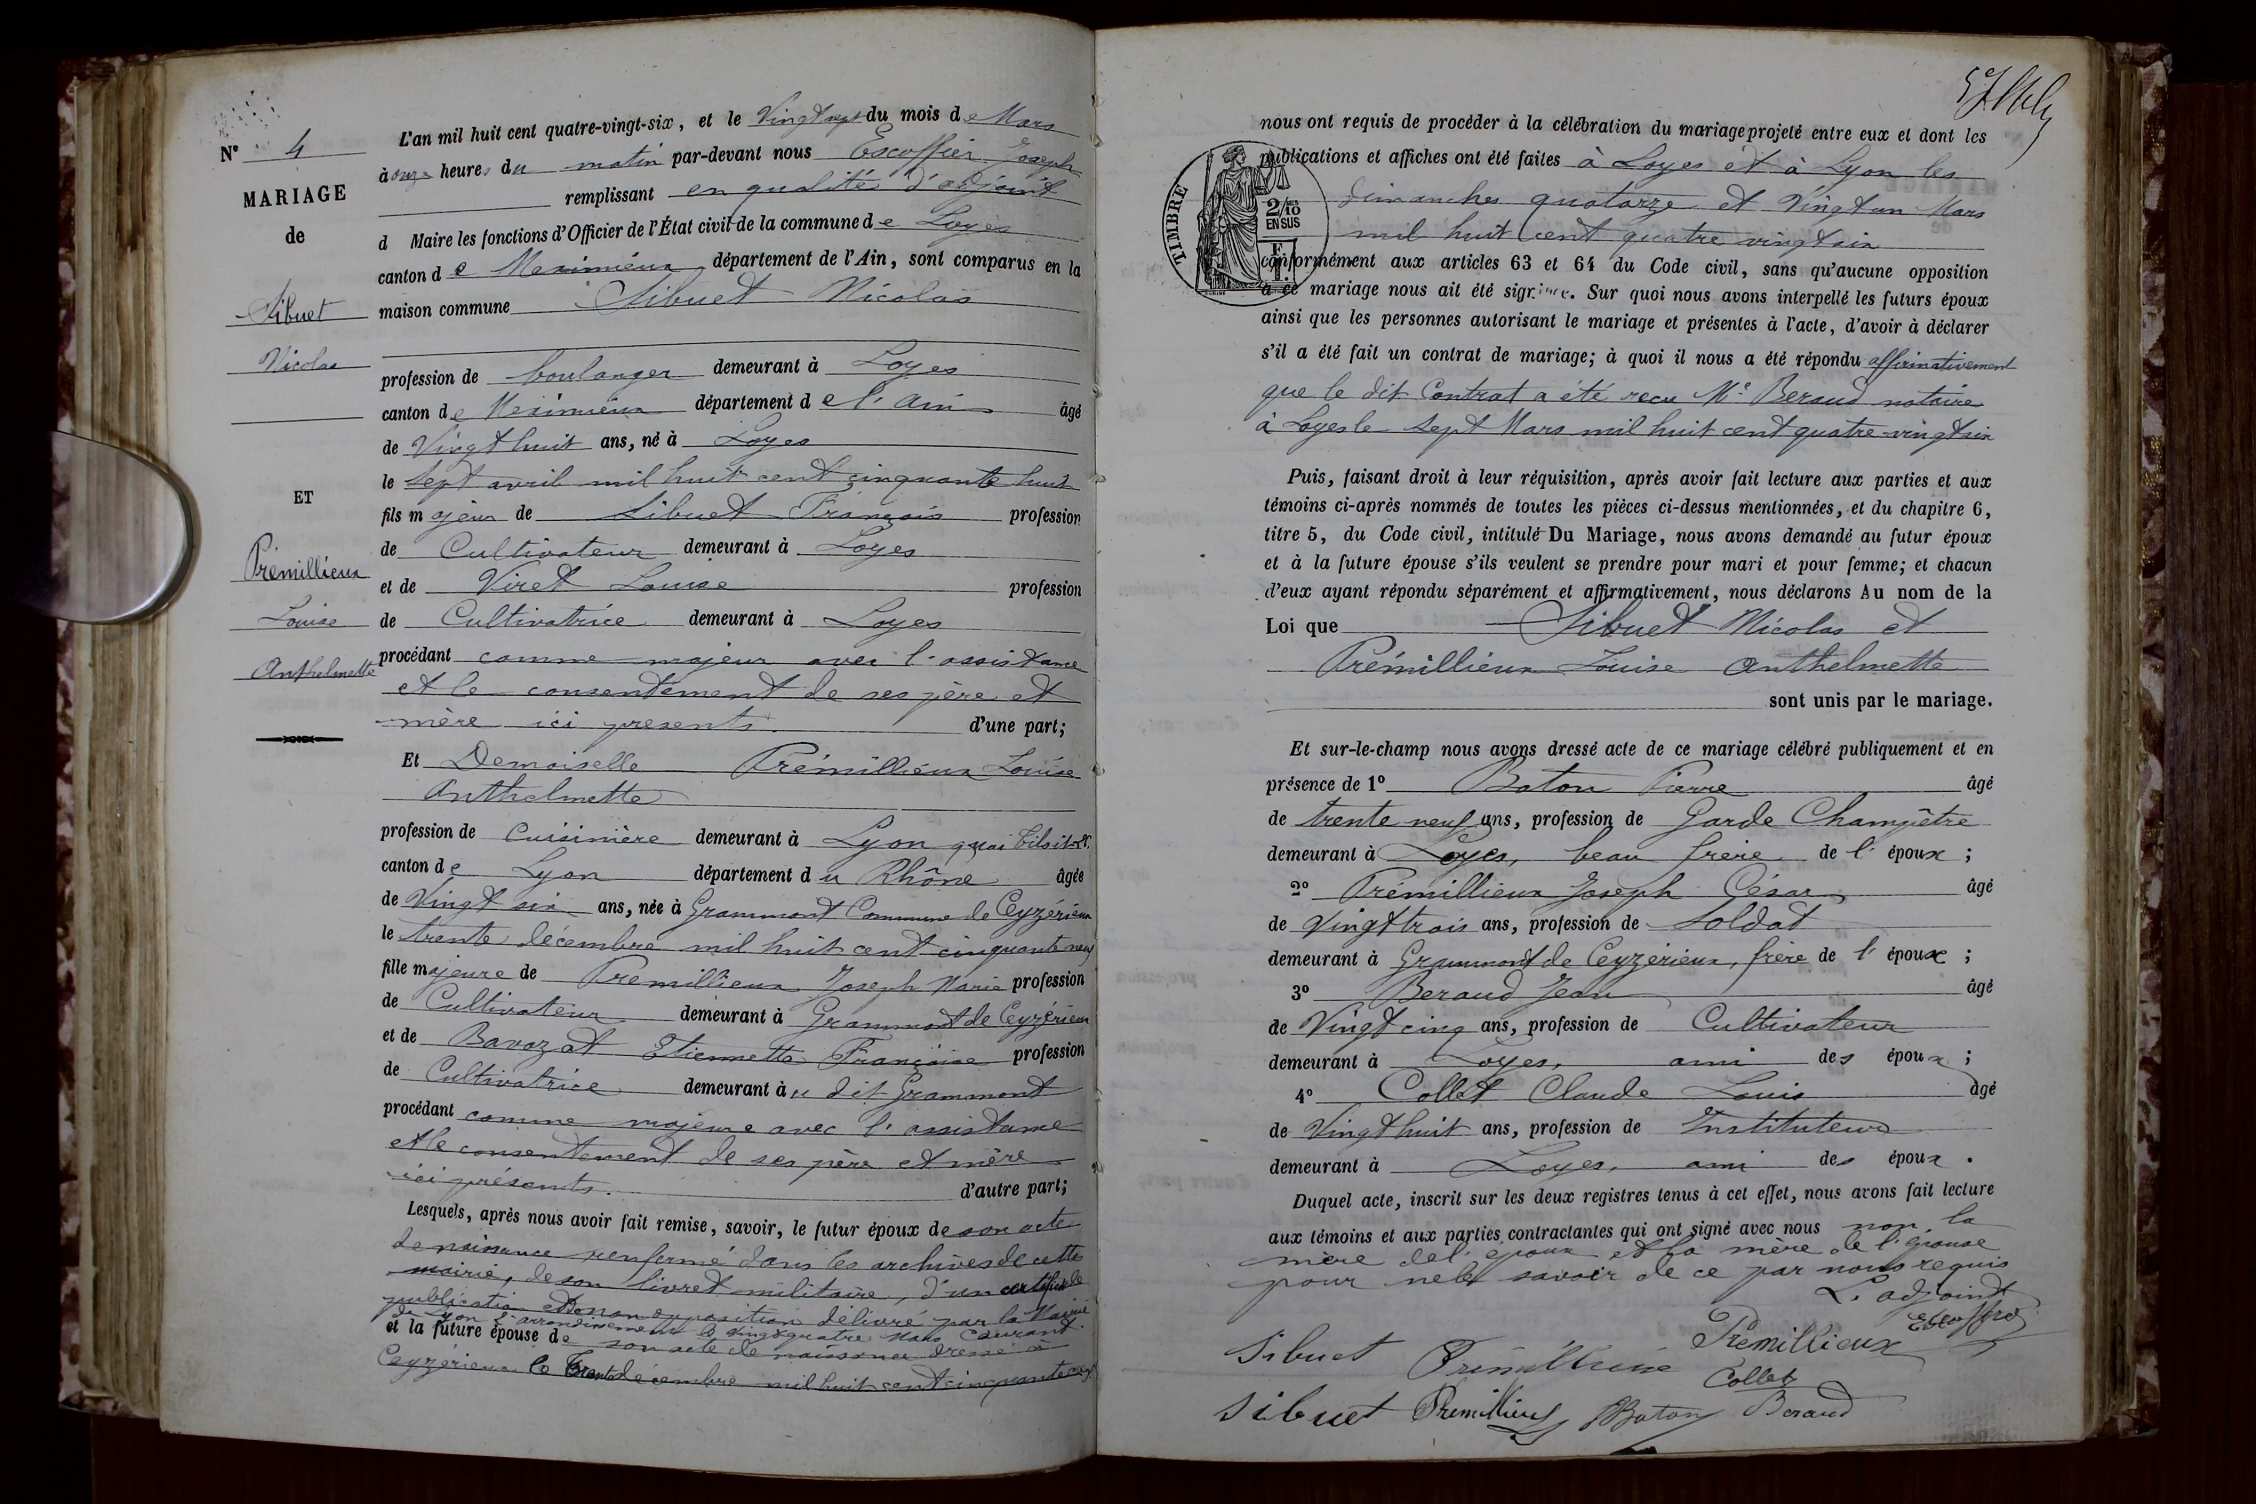 N° 4
MARIAGE
de
Sibuet
Nicolas
ET
Prémillieux
Louise
Anthelmette
L'an mil huit cent quatre-vingt-six, et le Vingt sept du mois de Mars
à onze heures du matin par-devant nous Escoffier Joseph
remplissant en qualité d'adjoint
d Maire les fonctions d'Officier de l'État civil de la commune de Loyes
canton de Meximieux département de l'Ain, sont comparus en la
maison commune Sibuet Nicolas
profession de boulanger demeurant à Loyes
canton de Meximieux département de l'Ain âgé
de Vingt huit ans, né à Loyes
le sept avril mil huit cent cinquante huit
fils majeur de Sibuet François profession
de Cultivateur demeurant à Loyes
et de Viret Louise profession
de Cultivatrice demeurant à Loyes
procédant comme majeur avec l'assistance
et le consentement de ses père et
mère ici présents. d'une part;
Et Demoiselle Prémillieux Louise
Anthelmette
profession de Cuisinière demeurant à Lyon quai Tilsitt
canton de Lyon département du Rhône âgée
de Vingt six ans, née à Grammont Commune de Ceyzérieux
le trente décembre mil huit cent cinquante neuf
fille majeure de Premillieux Joseph Marie profession
de Cultivateur demeurant à Grammont de Ceyzérieux
et de Bavozat Etiennette Françoise profession
de Cultivatrice demeurant au dit Grammont
procédant comme majeure avec l'assistance
et le consentement de ses père et mère
ici présents. d'autre part;
Lesquels, après nous avoir fait remise, savoir, le futur époux de son acte
de naissance renfermé dans les archives de cette
mairie, de son livret militaire, d'un certificat de
publication et de non opposition délivré par la Mairie
de Lyon arrondissement le vingt quatre Mars courant.
et la future épouse de son acte de naissance dressé à
Ceyzérieux le trente décembre mil huit cent cinquante neuf
nous ont requis de procéder à la célébration du mariage projeté entre eux et dont les
publications et affiches ont été faites à Loyes et à Lyon les
dimanches quatorze et Vingt un Mars
mil huit cent quatre vingt six
TIMBRE
2/10 EN SUS
conformément aux articles 63 et 64 du Code civil, sans qu'aucune opposition
à ce mariage nous ait été signifiée. Sur quoi nous avons interpellé les futurs époux
ainsi que les personnes autorisant le mariage et présentes à l'acte, d'avoir à déclarer
s'il a été fait un contrat de mariage; à quoi il nous a été répondu affirmativement
que le dit Contrat a été recu Me Beraud notaire
à Loyes le sept Mars mil huit cent quatre-vingt six
Puis, faisant droit à leur réquisition, après avoir fait lecture aux parties et aux
témoins ci-après nommés de toutes les pièces ci-dessus mentionnées, et du chapitre 6,
titre 5, du Code civil, intitulé Du Mariage, nous avons demandé au futur époux
et à la future épouse s'ils veulent se prendre pour mari et pour femme; et chacun
d'eux ayant répondu séparément et affirmativement, nous déclarons Au nom de la
Loi que Sibuet Nicolas et
Prémillieux Louise Anthelmette
sont unis par le mariage.
Et sur-le-champ nous avons dressé acte de ce mariage célébré publiquement et en
présence de 1° Baton Pierre âgé
de trente neuf ans, profession de Garde Champêtre
demeurant à Loyes, beau frère de l'époux;
2° Prémillieux Joseph César âgé
de Vingt trois ans, profession de Soldat
demeurant à Grammont de Ceyzérieux, frère de l'épouse;
3° Beraud Jean âgé
de Vingt cinq ans, profession de Cultivateur
demeurant à Loyes, ami des époux;
4° Collet Claude Louis âgé
de Vingt huit ans, profession de Instituteur
demeurant à Loyes, ami des époux.
Duquel acte, inscrit sur les deux registres tenus à cet effet, nous avons fait lecture
aux témoins et aux parties contractantes qui ont signé avec nous non la
mère de l'époux et la mère de l'épouse
pour ne le savoir de ce par nous requis
L'adjoint
Escoffier
Sibuet Prémillieux Prémillieux
Collet
Sibuet Prémillieux Baton Beraud